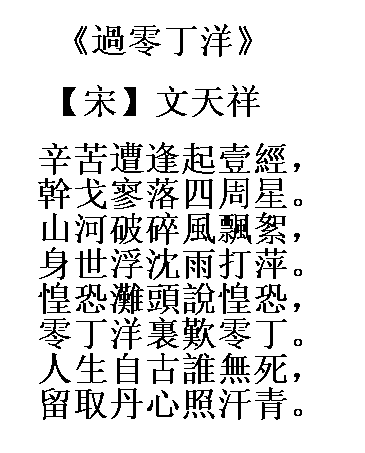 《過零丁洋》
【宋】文天祥
辛苦遭逢起壹經，
幹戈寥落四周星。
山河破碎風飄絮，
身世浮沈雨打萍。
惶恐灘頭說惶恐，
零丁洋裏歎零丁。
人生自古誰無死，
留取丹心照汗青。